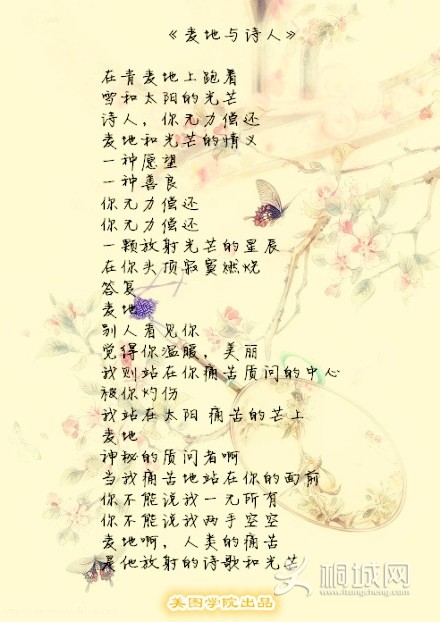 《麦地与诗人》
在青麦地上跑着
雪和太阳的光芒
诗人，你无力偿还
麦地和光芒的情义
一种愿望
一种善良
你无力偿还
你无力偿还
一颗放射光芒的星辰
在你头顶寂寞燃烧
答复
麦地
别人看见你
觉得你温暖，美丽
我则站在你痛苦质问的中心
被你灼伤
我站在太阳 痛苦的芒上
麦地
神秘的质问者啊
当我痛苦地站在你的面前
你不能说我一无所有
你不能说我两手空空
麦地啊，人类的痛苦
是他放射的诗歌和光芒
桐城网
www.tongcheng.com
美图学院出品